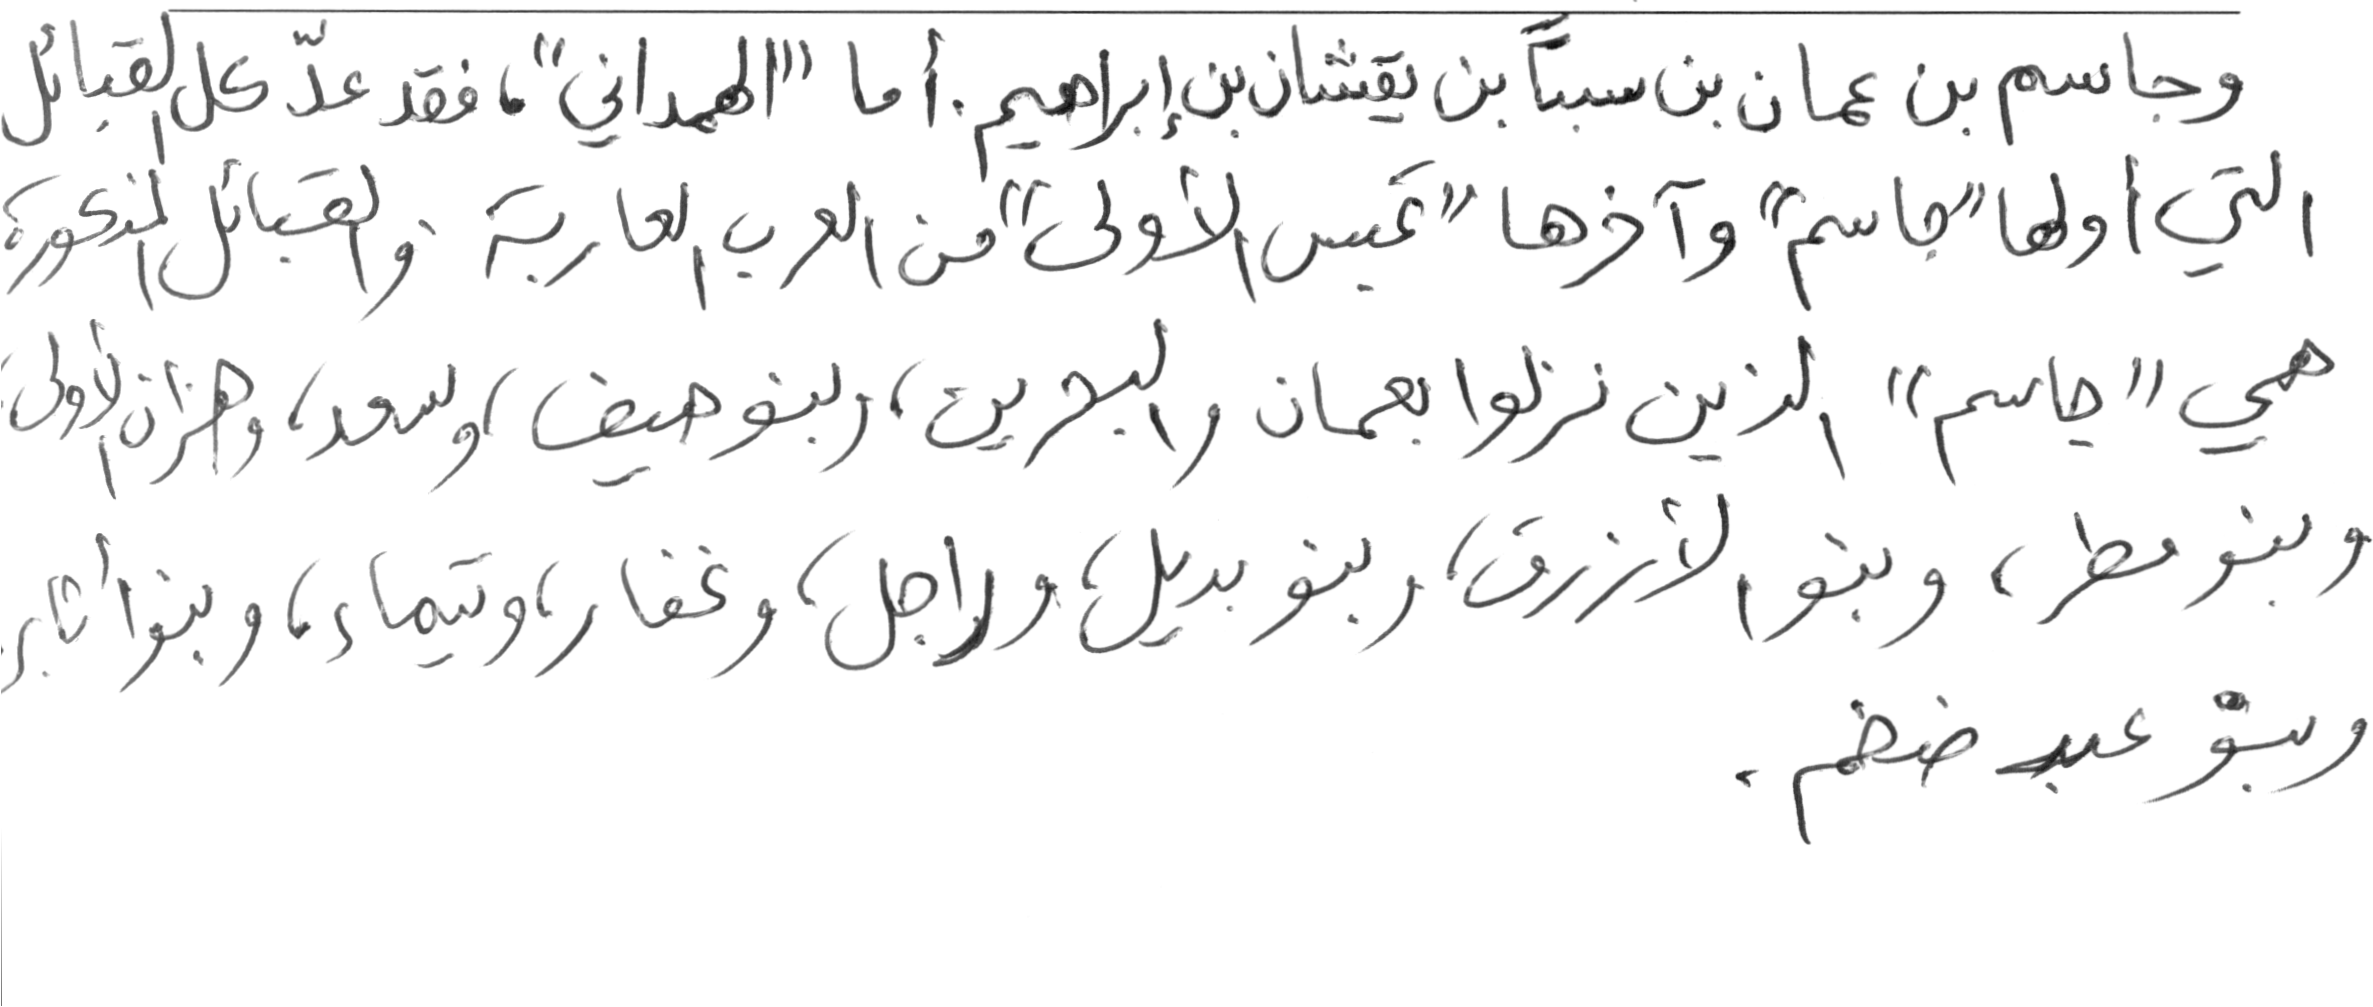 وجاسم بن عمان بن سبأ بن يقشان بن إبراهيم. أما "الهمداني"، فقد عدّ كل القبائل
التي أولها "جاسم" وآخرها "عبس الأولى" من العرب العاربة. والقبائل المذكورة
هي "جاسم" الذين نزلوا بعمان والبحرين، وبنو هيف، وسعد، وهزان الأولى،
وبنو مطر، وبنو الأزرق، وبنو بديل، وراجل، وغفار، وتيماء، وبنو أثابر
وبنو عبد ضخم.